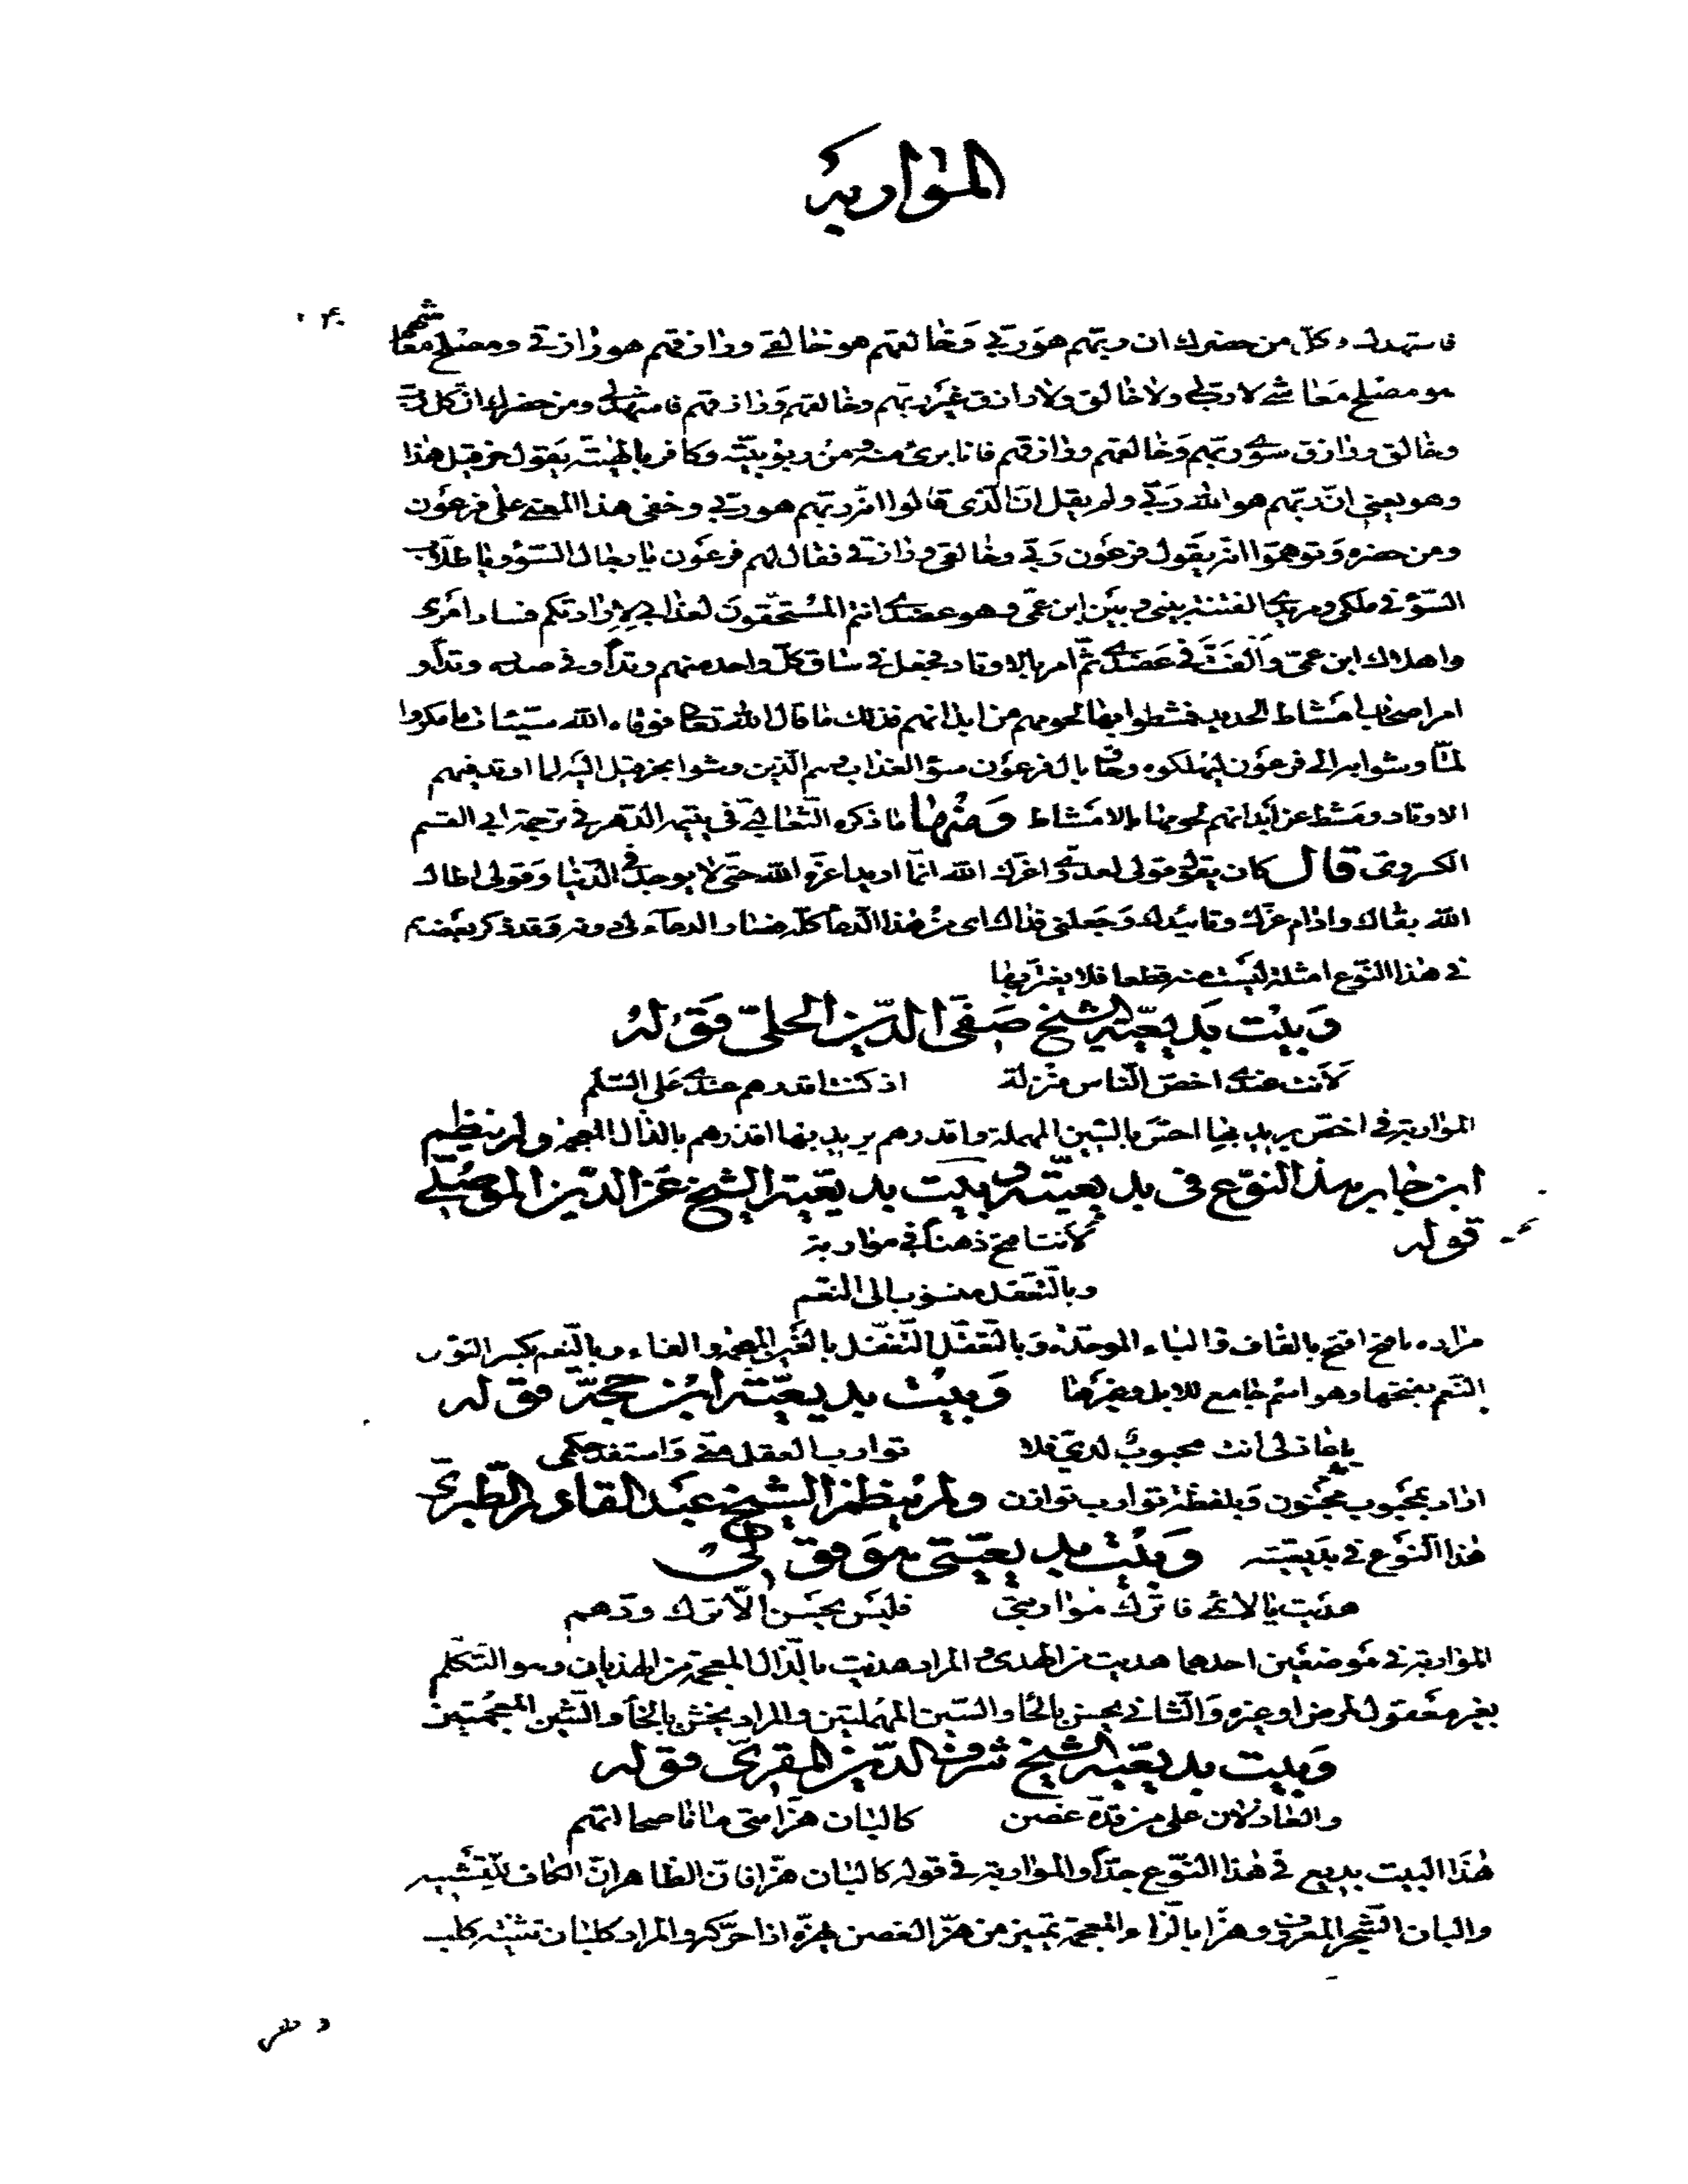 المواربة
فاشهدك وكل من حضرك ان ربهم هو ربي وخالقهم هو خالقي ورازقهم هو رازقي ومصلح معاشهم
هو مصلح معاشي لا رب لي ولا خالق ولا رازق غير ربهم وخالقهم ورازقهم فاشهدك ومن حضرك ان كل رب
وخالق ورازق سوى ربهم وخالقهم ورازقهم فانا برئ منه ومن ربوبيته وكافر بالهيته يقول حزقيل هذا
وهو يعني ان ربهم هو الله ربي ولم يقل ان الذي قالوا انه ربهم هو ربي وخفى هذا المعنى على فرعون
ومن حضره وتوهموا انه يقول فرعون ربي وخالقي ورازقي فقال لهم فرعون يا رجال السوء ويا طلاب
السوء في ملكي ومريدي الفتنة بيني وبين ابن عمي وهو عضدي انتم المستحقون لعذابي لارادتكم فساد امري
واهلاك ابن عمي والفت في عضدي ثم امر بالاوتاد فجعل في ساق كل واحد منهم وتدا وفي صدره وتدا و
امر اصحاب امشاط الحديد فمشطوا بها لحومهم من ابدانهم فذلك ما قال الله تعالى فوقاه الله سيئات ما مكروا
لما وشوا به الى فرعون ليهلكوه وحاق بال فرعون سوء العذاب وهم الذين وشوا بحزقيل اليه لما اوتد فيهم
الاوتاد ومشط عن ابدانهم لحومها بالامشاط ومنها ما ذكره الثعالبي في يتيمة الدهر في ترجمة ابي القسم
الكسروي قال كان يقول قولي لعدوي اعزك الله انما اريد اعزه الله حتى لا يوجد في الدنيا وقولي اطال
الله بقاك وادام عزك وتاييدك وجعلني فداك اي من هذا الدعا كله هنا والدعاء لي دونه وقد ذكر بعضهم
في هذا النوع امثلة ليست منه قطعا فلا يغتر بها
وبيت بديعية الشيخ صفي الدين الحلي قوله
لانت عندي اخص الناس منزلة اذ كنت اقدرهم عندي على السلم
المواربة في اخص يريد بها اخس بالسين المهملة واقدرهم يريد بها اقذرهم بالذال المعجمة ولم ينظم
ابن جابر هذا النوع في بديعيته وبيت بديعية الشيخ عز الدين الموصلي
قوله
لانت افتح ذهنا في مواربة
وبالتعقل منسوب الى النعم
مراده بافتح اقبح بالقاف والباء الموحدة وبالتعقل التغفل بالغين المعجمة والفاء وبالنعم بكسر النون
النعم بفتحها وهو اسم جامع للابل وغيرها وبيت بديعية ابن حجة قوله
يا عاذلي انت محبوب لدي فلا توارب العقل مني واستفد حكمي
اراد بمحبوب مجنون وبلفظة توارب توازن ولم ينظم الشيخ عبد القادر الطبري
هذا النوع في بديعيته وبيت بديعيتي هو قولي
هديت يا لائمي فاترك مواربتي فليس يحسن الا ترك ودهم
المواربة في موضعين احدهما هديت من الهدى والمراد هذيت بالذال المعجمة من الهذيان وهو التكلم
بغير معقول لمرض او غيره والثاني يحسن بالحا والسين المهملتين والمراد يخشن بالخا والشين المعجمتين
وبيت بديعية الشيخ شرف الدين المقري قوله
والعاذلان على من قده غصن كالبان هزا متى ما ناصحا اتهم
هذا البيت بديع في هذا النوع جدا والمواربة في قوله كالبان هزا فان الظاهر ان الكاف للتشبيه
والبان الشجر المعروف وهزا بالزاء المعجمة تمييز من هز الغصن يهزه اذا حركه والمراد كلبان تثنية كلب